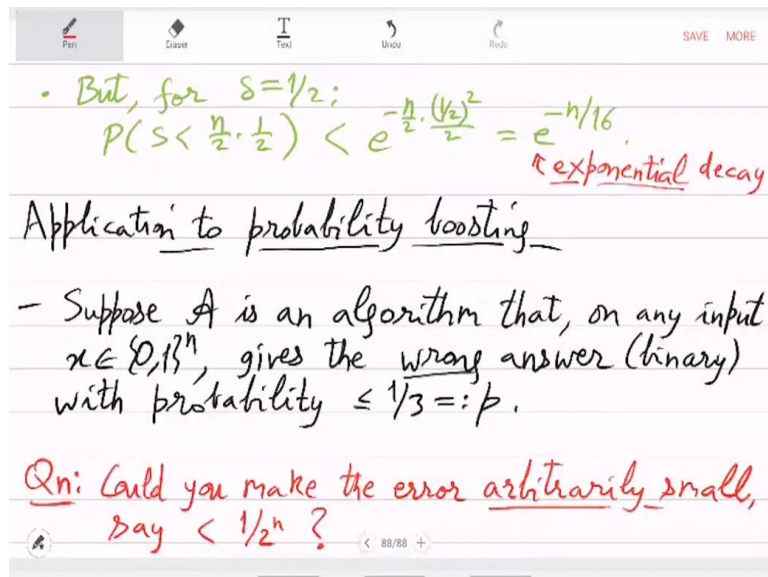 Pen Eraser Text Undo Redo SAVE MORE
• But, for δ=1/2:
P(S < n/2 · 1/2) < e^{-n/2 · (1/2)²/2} = e^{-n/16}.
↖ exponential decay
Application to probability boosting
- Suppose A is an algorithm that, on any input
x ∈ {0,1}ⁿ, gives the wrong answer (binary)
with probability ≤ 1/3 =: p.
Qn: Could you make the error arbitrarily small,
say < 1/2ⁿ ?
< 88/88 +